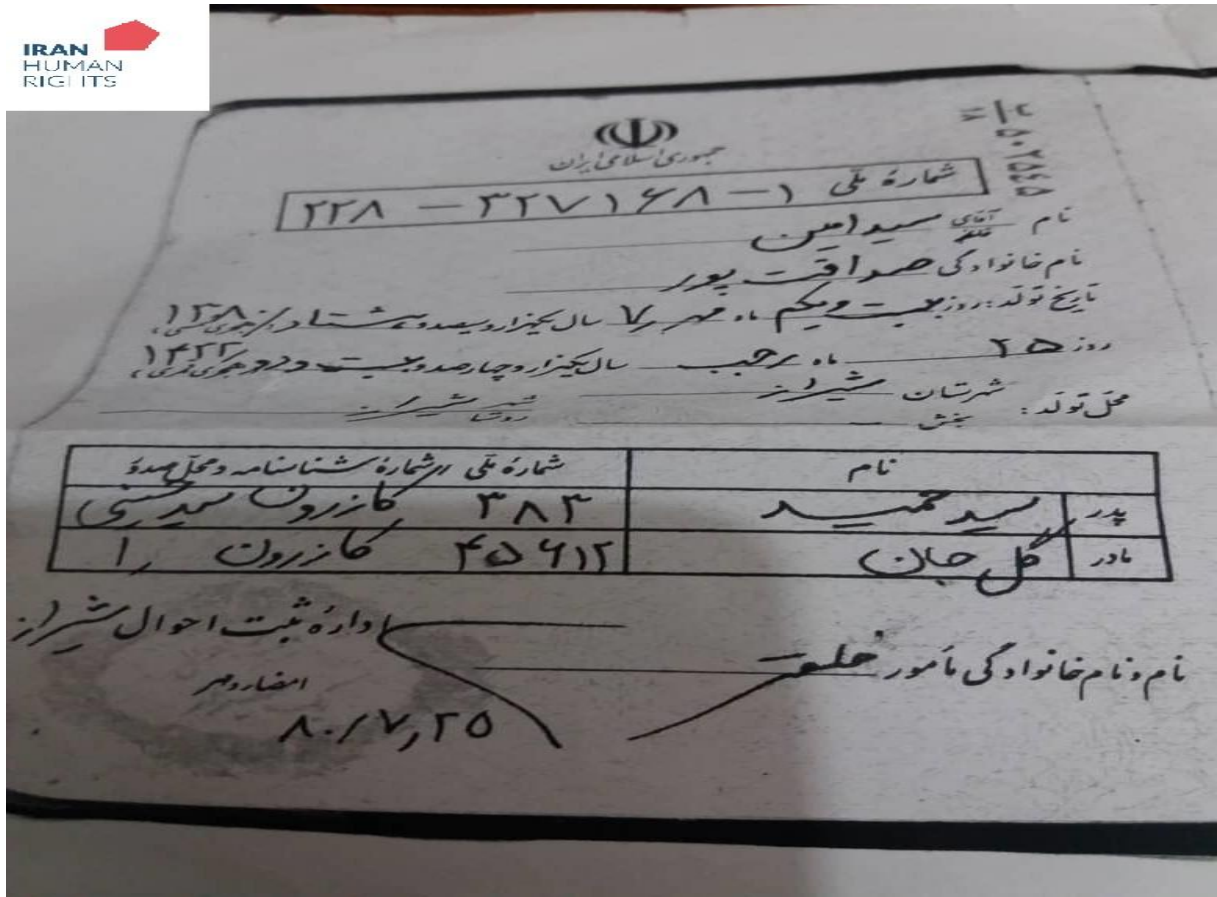 IRAN
HUMAN
RIGHTS
جمهوری اسلامی ایران
شمارهٔ ملی ۱-۳۲۷۱۶۸-۲۲۸
نام آقای سید امین
نام خانوادگی صداقت پور
تاریخ تولد: روز بیست و یکم ماه مهر ۷ سال یکهزار و سیصد و هشتاد ۱۳۸۰ هجری شمسی
روز ۲۵ ماه رجب سال یکهزار و چهارصد و بیست و دو ۱۴۲۲ هجری قمری
محل تولد: شهرستان شیراز شهر شیراز
بخش روستا
نام شمارهٔ ملی / شمارهٔ شناسنامه و محل صدور
پدر سید حمید ۳۸۳ کازرون
مادر گل جان ۴۵۶۱۲ کازرون ۱
نام و نام خانوادگی مأمور ادارهٔ ثبت احوال شیراز
امضاء و مهر
۸۰/۷/۲۵